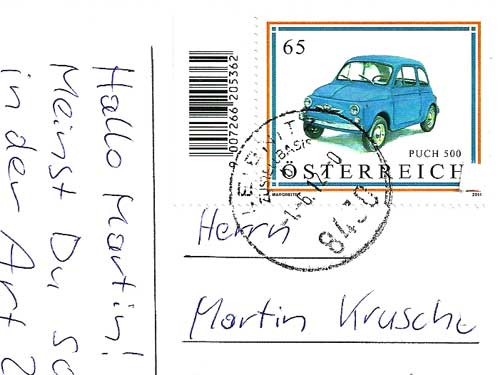 Hallo Martin!
Meinst Du so
in der Art 2
9 007266 205362
65
PUCH 500
ÖSTERREICH
LEIBNITZ
ZUSTELLBASIS
-1.-6.12-10
8430
Herrn
Martin Krusche